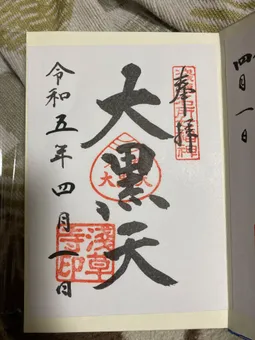 奉拝
大黒天
令和五年四月一日
浅草寺印
四月一日